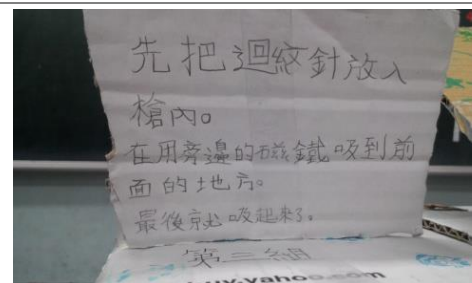 先把迴紋針放入
槍內。
在用旁邊的磁鐵吸到前
面的地方。
最後就吸起來了。
第三組
.yahoo.com